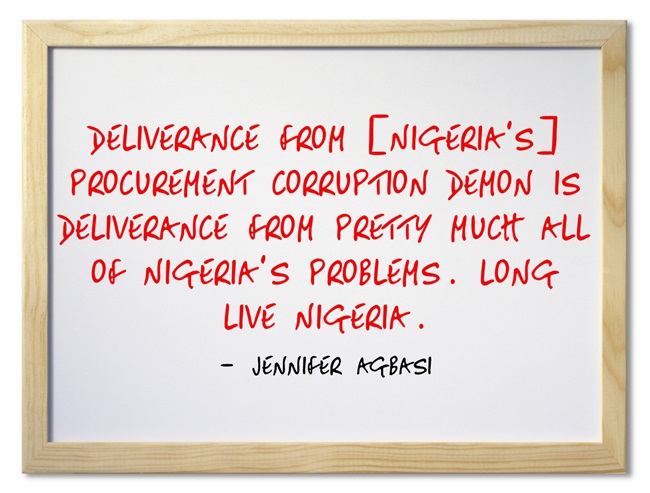 DELIVERANCE FROM [NIGERIA'S]
PROCUREMENT CORRUPTION DEMON IS
DELIVERANCE FROM PRETTY MUCH ALL
OF NIGERIA'S PROBLEMS. LONG
LIVE NIGERIA.
- JENNIFER AGBASI